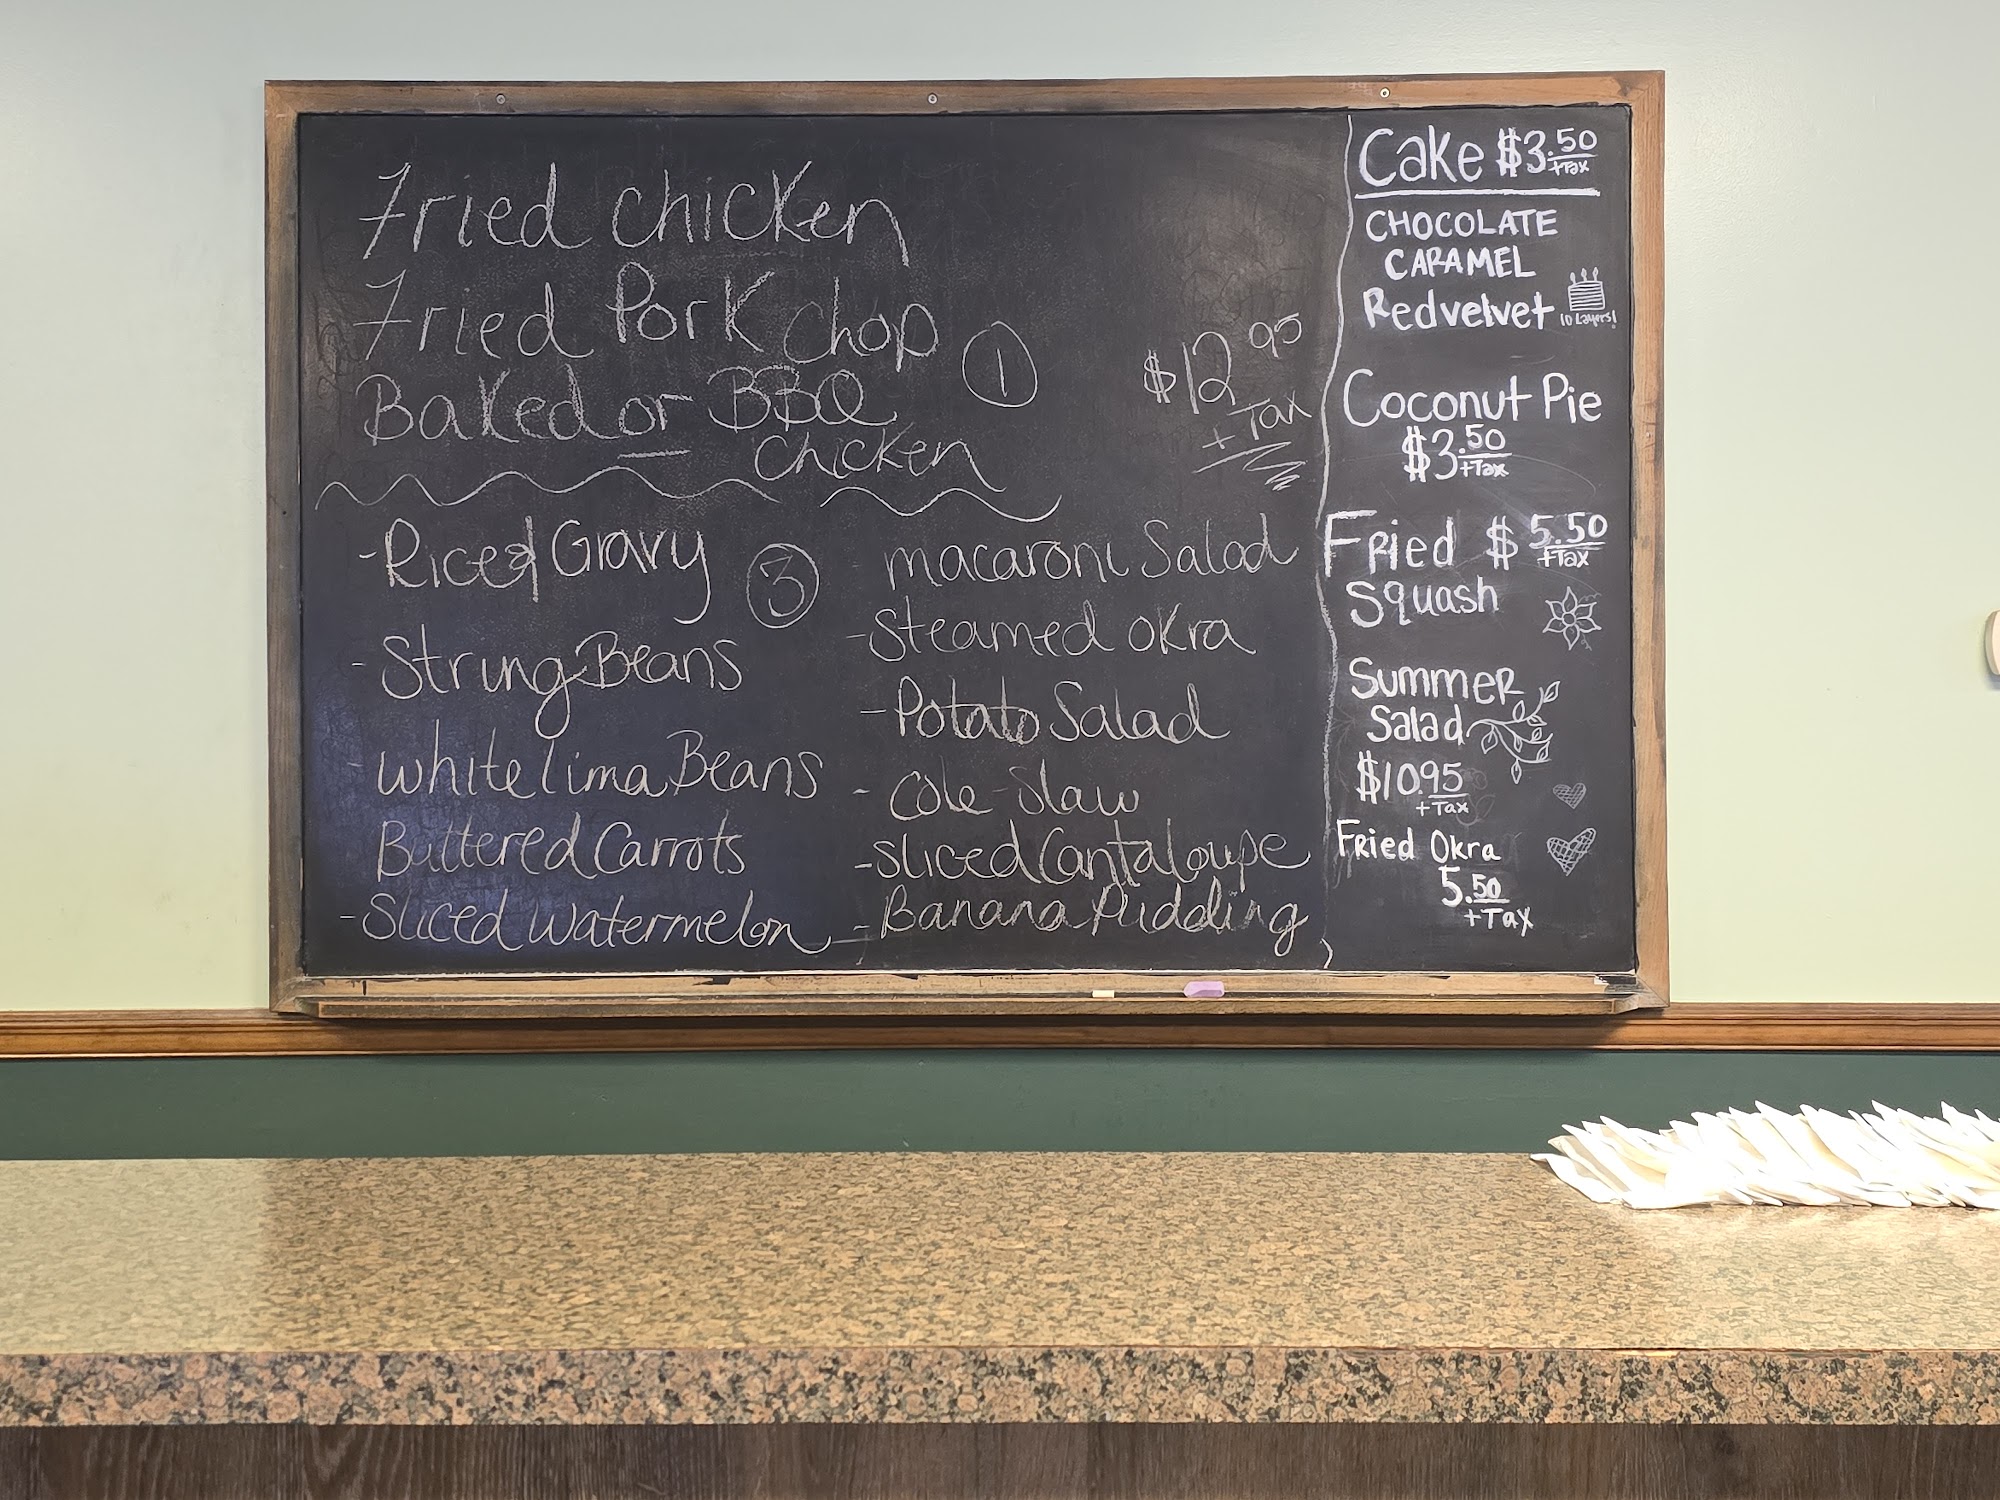 Fried chicken
Fried Pork Chop
Baked or BBQ
Chicken
1
$12.95
+ Tax
-Rice & Gravy
3
-String Beans
-white lima Beans
Buttered Carrots
-Sliced watermelon
macaroni Salad
-Steamed okra
-Potato Salad
- Cole Slaw
-sliced Cantaloupe
-Banana Pudding
Cake $3.50
+Tax
CHOCOLATE
CARAMEL
Redvelvet
10 Layers!
Coconut Pie
$3.50
+Tax
Fried $5.50
+Tax
Squash
Summer
Salad
$10.95
+Tax
Fried Okra
5.50
+Tax